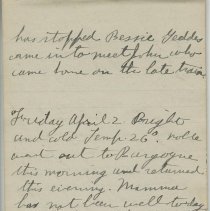 has stopped Bessie Geddes
came in to meet John who
came home on the late train
Friday April 2 Bright
and cold Temp 26°.
went out to Burgoyne
this morning and returned
this evening. Mamma
has not been well today